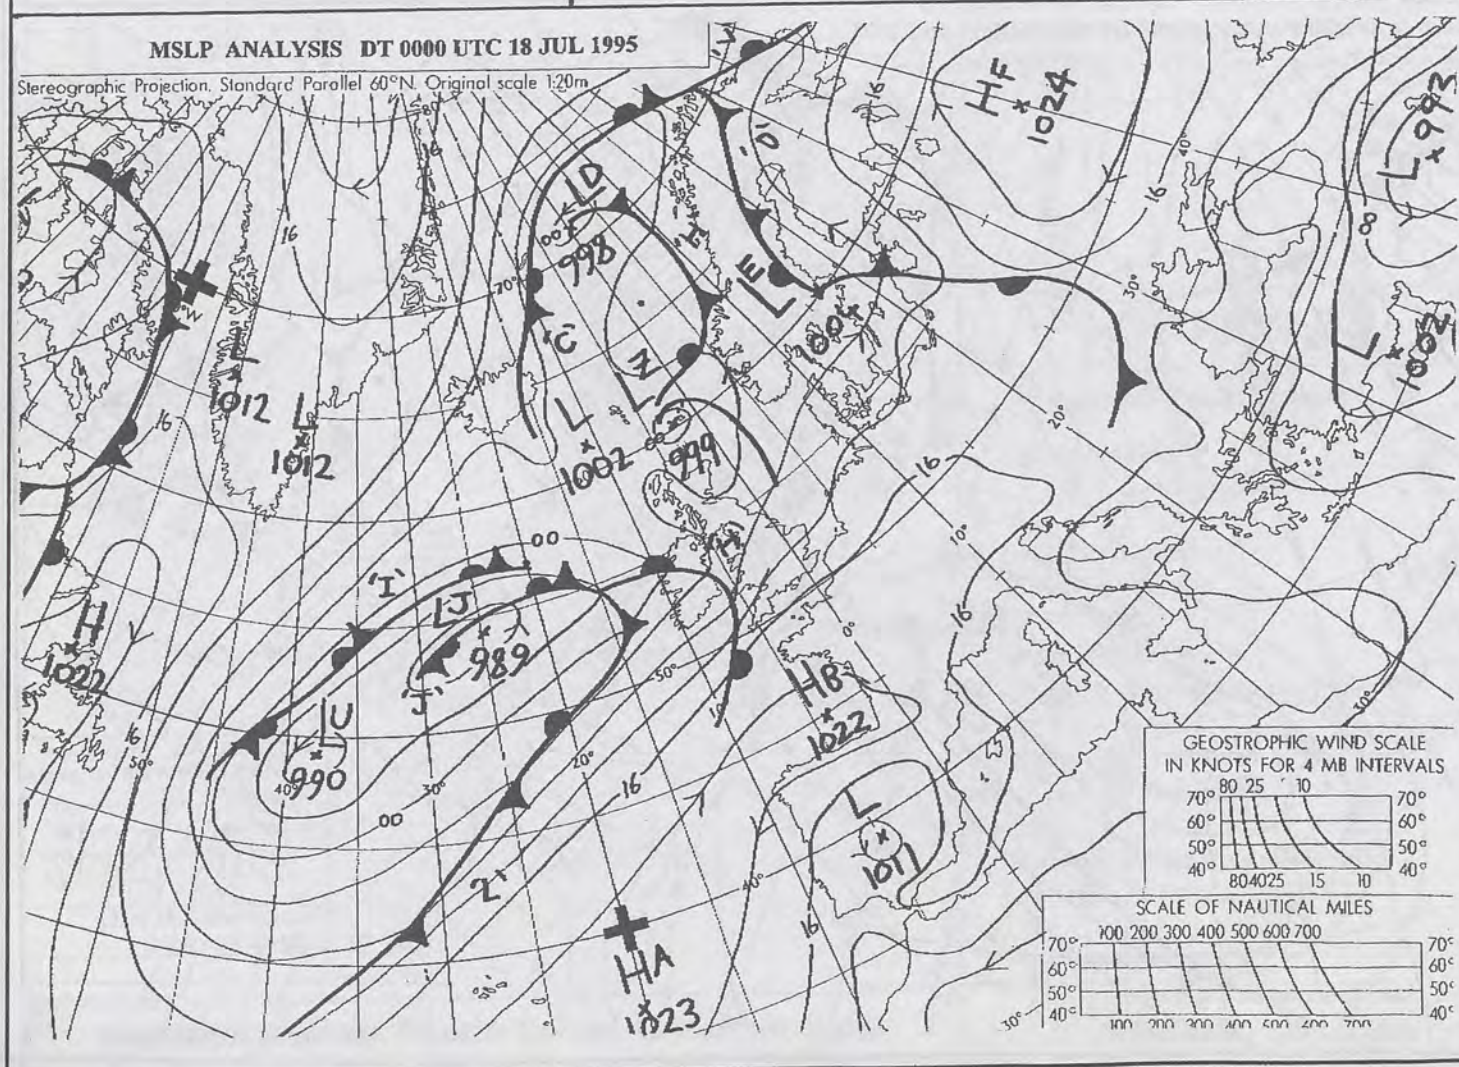 MSLP ANALYSIS DT 0000 UTC 18 JUL 1995
Stereographic Projection. Standard Parallel 60°N. Original scale 1:20m
80
HF
1024
16
40°
L 993
16
16
16
LD
00
998
'D'
08
30°
70°
'C'
LE
1004
L
1002
L
1012
16
L
1012
LZ
L
1002
999
00
20°
16
'H'
10°
00
'I'
LJ
989
'J'
H
1022
16
0°
50°
10°
HB
1022
30°
16
50°
LU
990
40°
30°
20°
16
00
'Z'
L
1011
40°
16
HA
1023
30°
GEOSTROPHIC WIND SCALE
IN KNOTS FOR 4 MB INTERVALS
80 25 10
70° 70°
60° 60°
50° 50°
40° 40°
80 40 25 15 10
SCALE OF NAUTICAL MILES
100 200 300 400 500 600 700
70° 70°
60° 60°
50° 50°
40° 40°
100 200 300 400 500 600 700